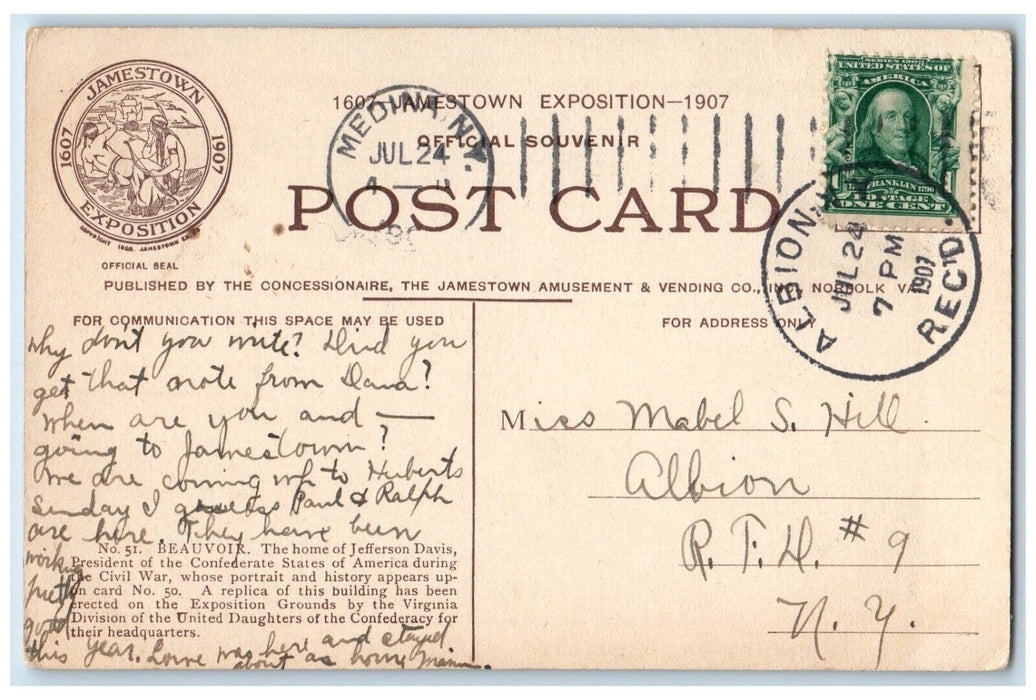 JAMESTOWN
1607 1907
EXPOSITION
COPYRIGHT 1906. JAMESTOWN EX
OFFICIAL SEAL
1607 JAMESTOWN EXPOSITION—1907
OFFICIAL SOUVENIR
POST CARD
PUBLISHED BY THE CONCESSIONAIRE, THE JAMESTOWN AMUSEMENT & VENDING CO., INC., NORFOLK VA
MEDINA, N.Y.
JUL 24
SERIES 1902
UNITED STATES OF
AMERICA
FRANKLIN 1790
POSTAGE
ONE CENT
ALBION
JUL 24
7 PM
1907
REC'D.
FOR COMMUNICATION THIS SPACE MAY BE USED
FOR ADDRESS ONLY
Why don't you write? Did you
get that note from Dana?
When are you and —
going to Jamestown?
We are coming up to Huberts
Sunday I guess Paul & Ralph
are here. They have been
working
pretty
good
this year. was here and stayed
about as
No. 51. BEAUVOIR. The home of Jefferson Davis,
President of the Confederate States of America during
the Civil War, whose portrait and history appears up-
on card No. 50. A replica of this building has been
erected on the Exposition Grounds by the Virginia
Division of the United Daughters of the Confederacy for
their headquarters.
Miss Mabel S. Hill.
Albion
R.F.D. #9
N.Y.